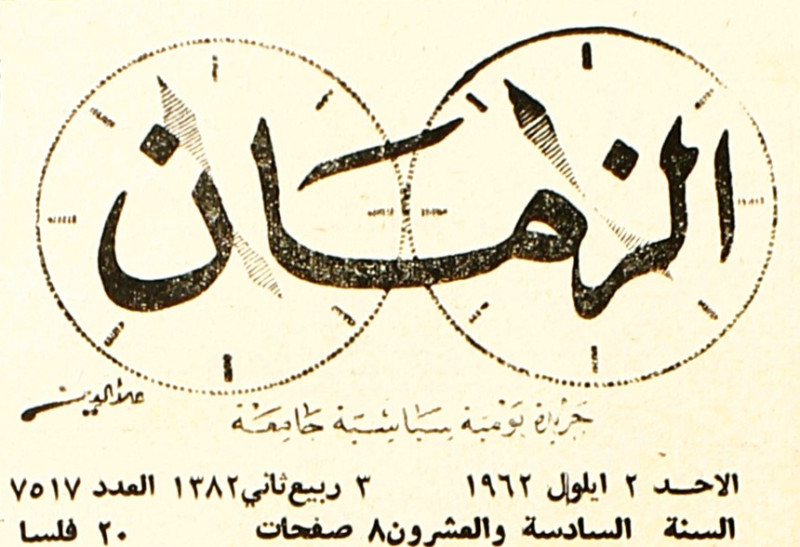 الزمان
علاءالدين
جريدة يومية سياسية جامعة
الاحد ٢ ايلول ١٩٦٢ ٣ ربيع ثاني ١٣٨٢ العدد ٧٥١٧
السنة السادسة والعشرون ٨ صفحات ٢٠ فلسا